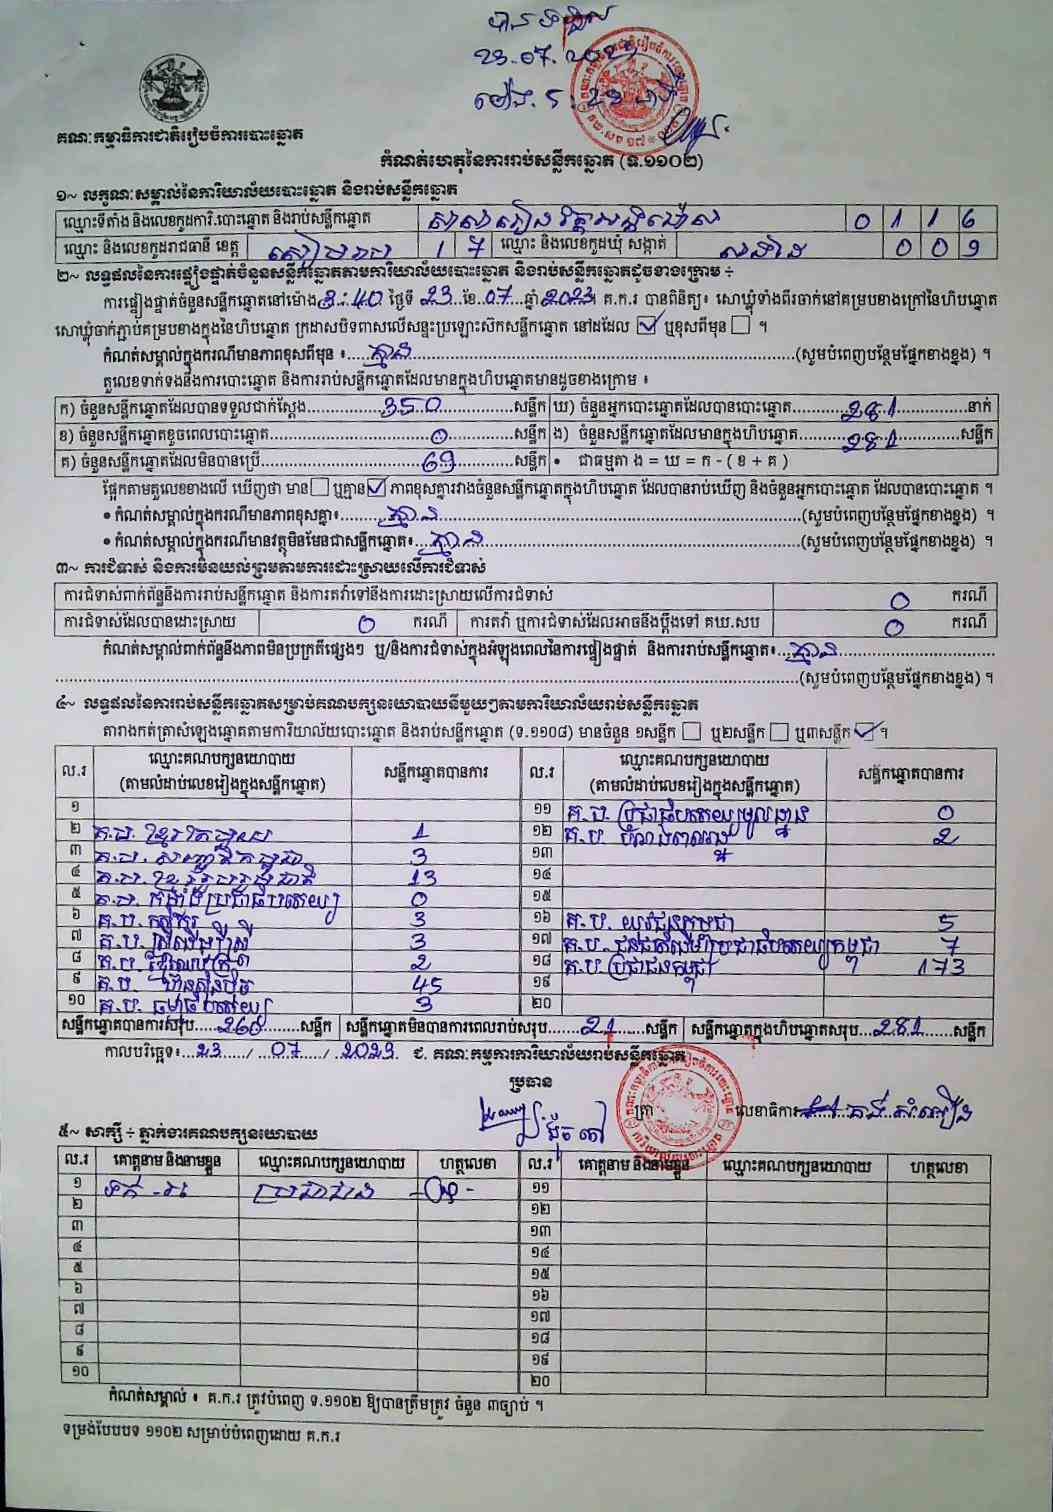 បានទទួល
23.07.2023
ម៉ោង 5:23 នាទី
គណៈកម្មាធិការជាតិរៀបចំការបោះឆ្នោត
កំណត់ហេតុនៃការរាប់សន្លឹកឆ្នោត (ទ.១១០២)
១~ លក្ខណៈសម្គាល់នៃការិយាល័យបោះឆ្នោត និងរាប់សន្លឹកឆ្នោត
ឈ្មោះទីតាំង និងលេខកូដការិ.បោះឆ្នោត និងរាប់សន្លឹកឆ្នោត សាលារៀន 0 1 1 6
ឈ្មោះ និងលេខកូដរាជធានី ខេត្ត សៀមរាប 1 7 ឈ្មោះ និងលេខកូដឃុំ សង្កាត់ 0 0 9
២~ លទ្ធផលនៃការផ្ទៀងផ្ទាត់ចំនួនសន្លឹកឆ្នោតតាមការិយាល័យបោះឆ្នោត និងរាប់សន្លឹកឆ្នោតដូចខាងក្រោម ÷
ការផ្ទៀងផ្ទាត់ចំនួនសន្លឹកឆ្នោតនៅម៉ោង 3:40 ថ្ងៃទី 23 ខែ 07 ឆ្នាំ 2023។ គ.ក.រ បានពិនិត្យ៖ សោឃ្លុំទាំងពីរចាក់នៅគម្របខាងក្រៅនៃហិបឆ្នោត
សោឃ្លុំចាក់ភ្ជាប់គម្របខាងក្នុងនៃហិបឆ្នោត ក្រដាសបិទពាសលើសន្ទះប្រឡោះស៊កសន្លឹកឆ្នោត នៅដដែល ☑ ឬខុសពីមុន ☐ ។
កំណត់សម្គាល់ក្នុងករណីមានភាពខុសពីមុន ៖ គ្មាន (សូមបំពេញបន្ថែមផ្នែកខាងខ្នង) ។
តួលេខទាក់ទងនឹងការបោះឆ្នោត និងការរាប់សន្លឹកឆ្នោតដែលមានក្នុងហិបឆ្នោតមានដូចខាងក្រោម ៖
ក) ចំនួនសន្លឹកឆ្នោតដែលបានទទួលជាក់ស្តែង 350 សន្លឹក ឃ) ចំនួនអ្នកបោះឆ្នោតដែលបានបោះឆ្នោត 281 នាក់
ខ) ចំនួនសន្លឹកឆ្នោតខូចពេលបោះឆ្នោត 0 សន្លឹក ង) ចំនួនសន្លឹកឆ្នោតដែលមានក្នុងហិបឆ្នោត 281 សន្លឹក
គ) ចំនួនសន្លឹកឆ្នោតដែលមិនបានប្រើ 69 សន្លឹក • ជាធម្មតា ង = ឃ = ក - ( ខ + គ )
ផ្អែកតាមតួលេខខាងលើ ឃើញថា មាន ☐ ឬគ្មាន ☑ ភាពខុសគ្នារវាងចំនួនសន្លឹកឆ្នោតក្នុងហិបឆ្នោត ដែលបានរាប់ឃើញ និងចំនួនអ្នកបោះឆ្នោត ដែលបានបោះឆ្នោត ។
• កំណត់សម្គាល់ក្នុងករណីមានភាពខុសគ្នា៖ គ្មាន (សូមបំពេញបន្ថែមផ្នែកខាងខ្នង) ។
• កំណត់សម្គាល់ក្នុងករណីមានវត្ថុមិនមែនជាសន្លឹកឆ្នោត៖ គ្មាន (សូមបំពេញបន្ថែមផ្នែកខាងខ្នង) ។
៣~ ការជំទាស់ និងការមិនយល់ព្រមតាមការដោះស្រាយលើការជំទាស់
ការជំទាស់ពាក់ព័ន្ធនឹងការរាប់សន្លឹកឆ្នោត និងការតវ៉ាទៅនឹងការដោះស្រាយលើការជំទាស់ 0 ករណី
ការជំទាស់ដែលបានដោះស្រាយ 0 ករណី ការតវ៉ា ឬការជំទាស់ដែលអាចនឹងប្តឹងទៅ គឃ.សប 0 ករណី
កំណត់សម្គាល់ពាក់ព័ន្ធនឹងភាពមិនប្រក្រតីផ្សេងៗ ឬ/និងការជំទាស់ក្នុងអំឡុងពេលនៃការផ្ទៀងផ្ទាត់ និងការរាប់សន្លឹកឆ្នោត៖ គ្មាន
(សូមបំពេញបន្ថែមផ្នែកខាងខ្នង) ។
៤~ លទ្ធផលនៃការរាប់សន្លឹកឆ្នោតសម្រាប់គណបក្សនយោបាយនីមួយៗតាមការិយាល័យរាប់សន្លឹកឆ្នោត
តារាងកត់ត្រាសំឡេងឆ្នោតតាមការិយាល័យបោះឆ្នោត និងរាប់សន្លឹកឆ្នោត (ទ.១១០៨) មានចំនួន ១សន្លឹក ☐ ឬ២សន្លឹក ☐ ឬ៣សន្លឹក ☑ ។
ល.រ ឈ្មោះគណបក្សនយោបាយ (តាមលំដាប់លេខរៀងក្នុងសន្លឹកឆ្នោត) សន្លឹកឆ្នោតបានការ ល.រ ឈ្មោះគណបក្សនយោបាយ (តាមលំដាប់លេខរៀងក្នុងសន្លឹកឆ្នោត) សន្លឹកឆ្នោតបានការ
១ ១១ គ.ប. ប្រជាធិបតេយ្យមូលដ្ឋាន 0
២ គ.ប. ខ្មែរ 1 ១២ គ.ប. បំរើ 2
៣ គ.ប. សញ្ជាតិកម្ពុជា 3 ១៣
៤ គ.ប. ខ្មែររួបរួមជាតិ 13 ១៤
៥ គ.ប. កម្លាំងប្រជាធិបតេយ្យ 0 ១៥
៦ គ.ប. កសិករ 3 ១៦ គ.ប. យុវជនកម្ពុជា 5
៧ គ.ប. ស្ត្រីដើម្បីស្ត្រី 3 ១៧ គ.ប. ជនជាតិដើមប្រជាធិបតេយ្យកម្ពុជា 7
៨ គ.ប. ខ្មែរ 2 ១៨ គ.ប. ប្រជាជនកម្ពុជា 173
៩ គ.ប. ហ៊្វុនស៊ិនប៉ិច 45 ១៩
១០ គ.ប. ធម្មាធិបតេយ្យ 3 ២០
សន្លឹកឆ្នោតបានការសរុប 260 សន្លឹក សន្លឹកឆ្នោតមិនបានការពេលរាប់សរុប 21 សន្លឹក សន្លឹកឆ្នោតក្នុងហិបឆ្នោតសរុប 281 សន្លឹក
កាលបរិច្ឆេទ៖ 23 / 07 / 2023 ជ. គណៈកម្មការការិយាល័យរាប់សន្លឹកឆ្នោត
ប្រធាន
ត្រា លេខាធិការ
៥~ សាក្សី ÷ ភ្នាក់ងារគណបក្សនយោបាយ
ល.រ គោត្តនាម និងនាមខ្លួន ឈ្មោះគណបក្សនយោបាយ ហត្ថលេខា ល.រ គោត្តនាម និងនាមខ្លួន ឈ្មោះគណបក្សនយោបាយ ហត្ថលេខា
១ ប្រជាជន ១១
២ ១២
៣ ១៣
៤ ១៤
៥ ១៥
៦ ១៦
៧ ១៧
៨ ១៨
៩ ១៩
១០ ២០
កំណត់សម្គាល់ ៖ គ.ក.រ ត្រូវបំពេញ ទ.១១០២ ឱ្យបានត្រឹមត្រូវ ចំនួន ៣ច្បាប់ ។
ទម្រង់បែបបទ ១១០២ សម្រាប់បំពេញដោយ គ.ក.រ